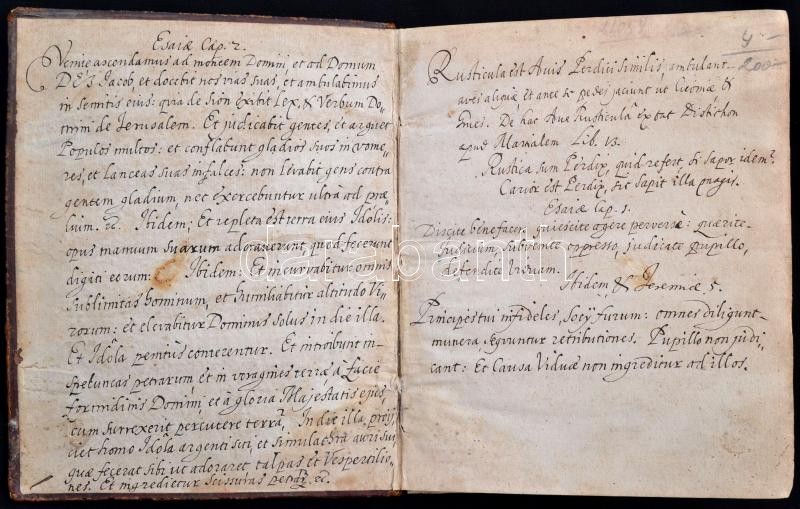 Esaiæ Cap. 2.
Venite ascendamus ad montem Domini, et ad Domum
DEI Jacob, et docebit nos vias suas, et ambulabimus
in semitis eius: quia de Sion exibit Lex, & Verbum Do-
mini de Jerusalem. Et judicabit gentes, et arguet
Populos multos: et conflabunt gladios suos in vome-
res, et Lanceas suas in falces: non levabit gens contra
gentem gladium, nec exercebuntur ultrà ad præ-
lium. &c. Ibidem; Et repleta est terra eius Idolis:
opus manuum suarum adoraverunt, quod fecerunt
digiti eorum: Ibidem: Et incurvabitur omnis
Sublimitas hominum, et humiliabitur altitudo Vi-
rorum: et elevabitur Dominus solus in die illa.
Et Idôla penitus conterentur. Et introibunt in
speluncas petrarum et in voragines terræ à facie
formidinis Domini, et à gloria Majestatis ejus,
cum surrexerit percutere terrã. In die illa, proij-
ciet homo Idôla argenti sui, et simulachra auri sui
quæ fecerat sibi ut adoraret talpas et Vespertilio-
nes. Et ingredietur scissuras petrarũ. &c.
4
200
Rusticula est Avis Perdici similis, ambulant
aves aliquæ et ante se pedes jacunt ut Ciconiæ &
De hac Ave Rusticula extat Distichon
apud Martialem Lib. 13.
Rustica sum Perdix, quid refert si sapor idem?
Carior est Perdix, sic sapit illa magis.
Esaiæ Cap. 1.
Discite benefacere, quiescite agere perversè: quærite
Judicium, subvenite oppresso, judicate pupillo,
defendite Viduam.
Ibidem & Jeremiæ 5.
Principes tui infideles, Socij furum: omnes diligunt
munera sequuntur retributiones. Pupillo non judi-
cant: Et Causa Viduæ non ingreditur ad illos.
darabanth